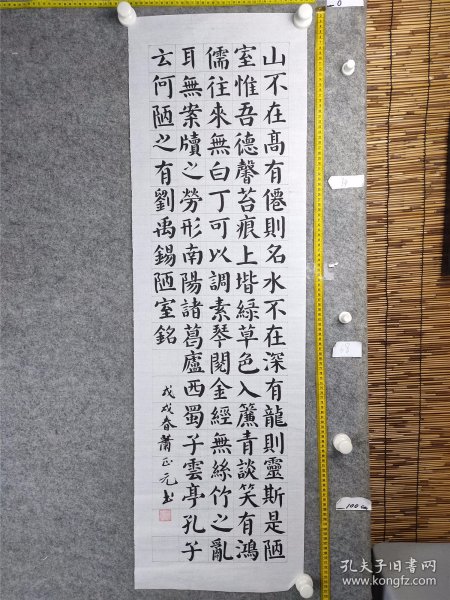 山不在高有僊則名水不在深有龍則靈斯是陋
室惟吾德馨苔痕上堦緑草色入簾青談笑有鴻
儒往來無白丁可以調素琴閱金經無絲竹之亂
耳無案牘之勞形南陽諸葛廬西蜀子雲亭孔子
云何陋之有劉禹錫陋室銘
戊戌春蕭正元书
0
100 cm
孔夫子旧书网
www.kongfz.com